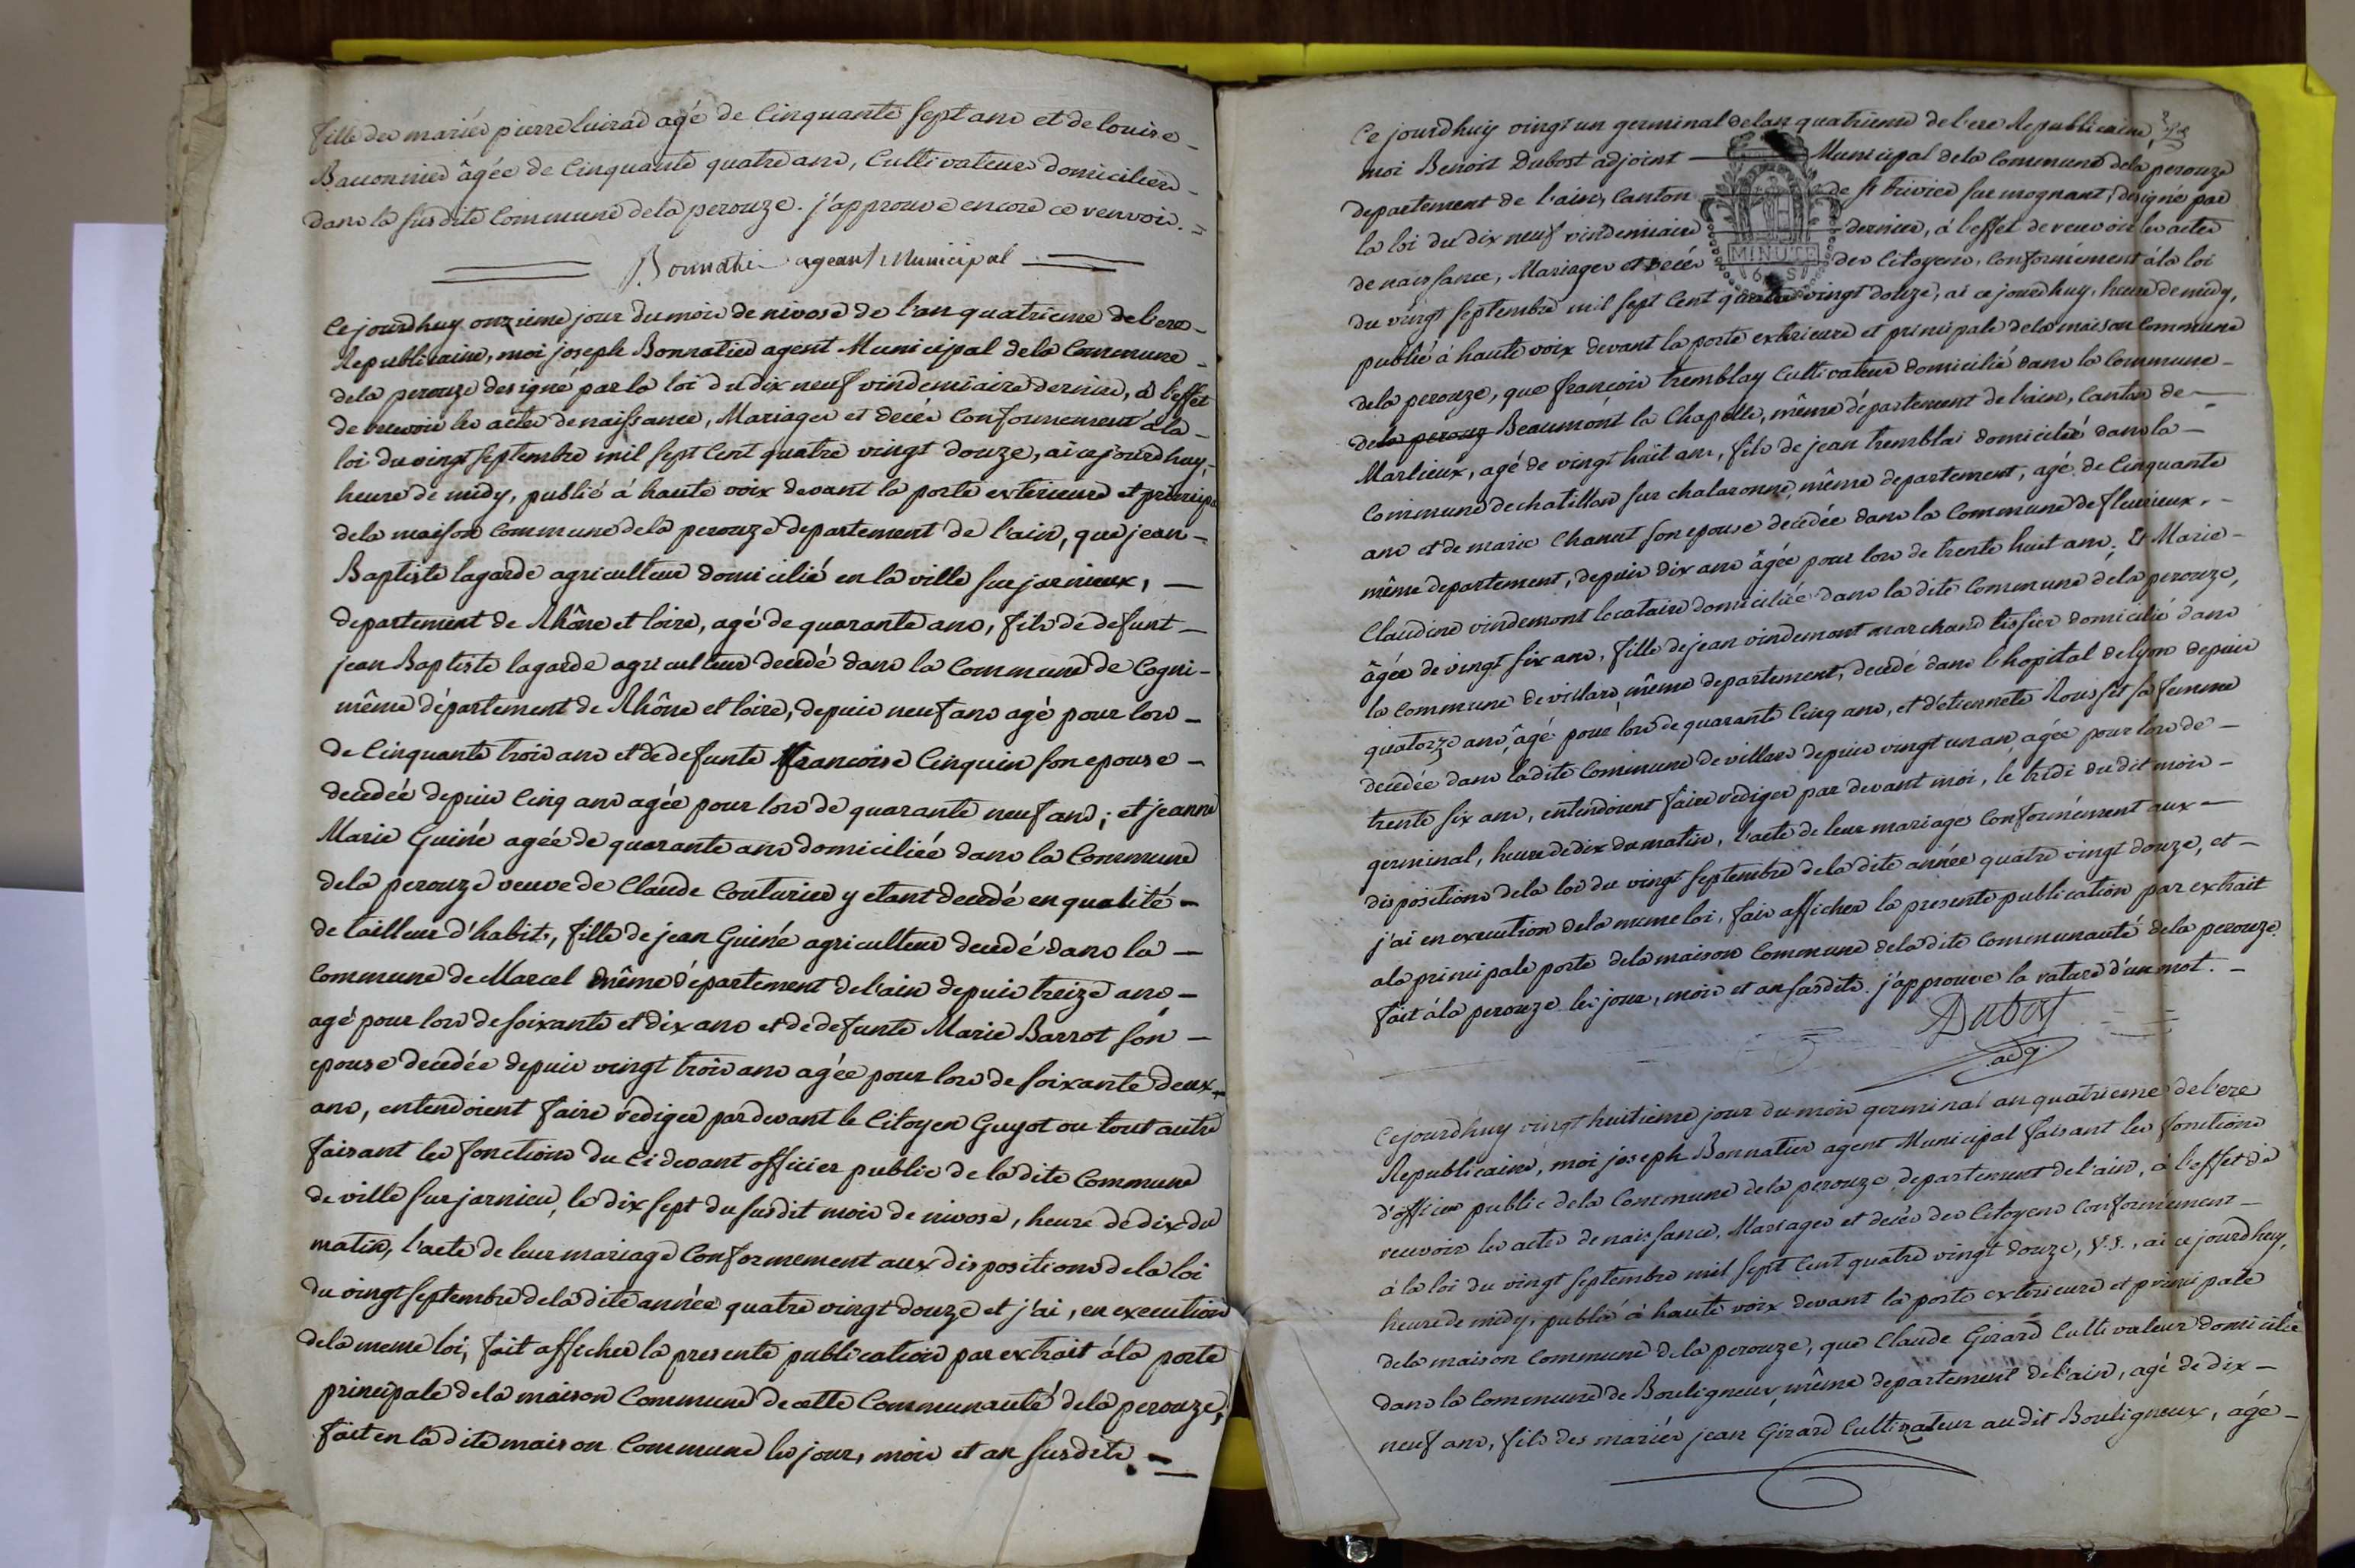 fille des mariés pierre luirad agé de Cinquante sept ans et de louise
Baconnier âgée de Cinquante quatre ans, Cultivateurs domiciliers
dans la susdite Commune de la perouze. j'approuve encore ce renvoi. =
Bonnatié ageant Municipal
Ce jourdhuy onzieme jour du mois de nivose de l'an quatrieme de l'ere
Republicaine, moi joseph Bonnatier agent Municipal de la Commune
de la perouze designé par la loi du dix neuf vindemiaire dernier, à l'effet
de recevoir les actes de naissance, Mariages et decés Conformement à la
loi du vingt septembre mil sept Cent quatre vingt douze, ai cejourdhuy,
heure de midy, publié á haute voix devant la porte exterieure et principa
de la maison Commune de la perouze departement de l'ain, que jean
Baptiste lagarde agriculteur domicilié en la ville sur jarnieux,
departement de Rhône et loire, agé de quarante ans, fils de defunt
jean Baptiste lagarde agriculteur decedé dans la Commune de Cogni
même département de Rhône et loire, depuis neuf ans agé pour lors
de Cinquante trois ans et de defunte francoise Cinquin son epouse
decedée depuis Cinq ans agée pour lors de quarante neuf ans; et jeanne
Marie Guiné agée de quarante ans domiciliée dans la Commune
de la perouze veuve de Claude Couturier y etant decedé en qualité
de tailleur d'habits, fille de jean Guiné agriculteur decedé dans la
Commune de Marcel même département de l'ain depuis treize ans
agé pour lors de soixante et dix ans et de defunte Marie Barrot son
epouse decedée depuis vingt trois ans agée pour lors de soixante deux
ans, entendoient faire rediger par devant le Citoyen Guyot ou tout autre
faisant les fonctions du Ci devant officier public de la dite Commune
de ville sur jarnieu, le dix sept du susdit mois de nivose, heure de dix du
matin, l'acte de leur mariage Conformement aux dispositions de la loi
du vingt septembre de la dite année quatre vingt douze et j'ai, en execution
de la meme loi, fait afficher la presente publication par extrait á la porte
principale de la maison Commune de cette Communauté de la perouze,
fait en la dite maison Commune les jour, mois et an susdits.
Ce jourdhuy vingt un germinal de l'an quatrieme de l'ere Republicaine,
moi Benoit Dubost adjoint Municipal de la Commune de la perouze
departement de l'ain, Canton de st trivier sur mognant, designé par
la loi du dix neuf vindemiaire dernier, á l'effet de recevoir les actes
de naissance, Mariages et Decés des Citoyens, Conformément á la loi
MINUTE
6 S
du vingt septembre mil sept Cent quatre vingt douze, ai ce jourdhuy, heure de midy,
publié à haute voix devant la porte exterieure et principale de la maison Commune
de la perouze, que françois tremblay Cultivateur domicilié dans la Commune
de la perouz Beaumont la Chapelle, même département de l'ain, Canton de
Marlieux, agé de vingt huit ans, fils de jean tremblai domicilié dans la
Commune de chatillon sur chalaronne, même departement, agé de Cinquante
ans et de marie Chanut son epouse decedée dans la Commune de fleurieux,
même departement, depuis dix ans âgée pour lors de trente huit ans. Et Marie
Claudine vindemont locataire domiciliée dans la dite Commune de la perouze,
âgée de vingt six ans, fille de jean vindemont marchand tissier domicilié dans
la Commune de villars, même departement, decedé dans l'hopital de lyon depuis
quatorze ans, agé pour lors de quarante Cinq ans, et d'etiennete Rousset sa femme
decedée dans ladite Commune de villars depuis vingt un an, agée pour lors de
trente six ans, entendoient faire rediger par devant moi, le tridi dudit mois
germinal, heure de dix du matin, l'acte de leur mariages Conformément aux
dispositions de la loi du vingt septembre de la dite année quatre vingt douze, et
j'ai en execution de la meme loi, fais afficher la presente publication par extrait
a la principale porte de la maison Commune de la dite Communauté de la perouze.
fait á la perouze les jour, mois et an susdits. j'approuve la rature d'un mot.
Dubost
adj.
Cejourd'huy vingt huitieme jour du mois germinal an quatrieme de l'ere
Republicaine, moi joseph Bonnatier agent Municipal faisant les fonctions
d'officier public de la Commune de la perouze departement de l'ain, à l'effet de
recevoir les actes de naissance, Mariages et decés des Citoyens Conformement
à la loi du vingt septembre mil sept Cent quatre vingt douze, V.S., ai ce jourdhuy,
heure de midy, publié à haute voix devant la porte exterieure et principale
de la maison Commune de la perouze, que Claude Girard Cultivateur domicilié
dans la Commune de Bouligneux, même departement de l'ain, agé de dix
neuf ans, fils des mariés jean Girard Cultivateur audit Bouligneux, agé